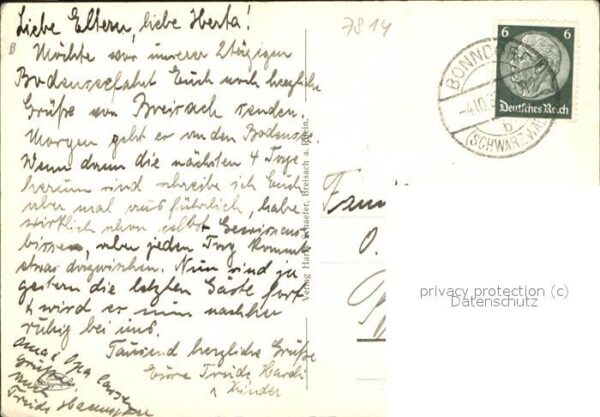 Liebe Eltern, liebe Herta!
7814
Möchte vor unserer 2tägigen
Bodenseefahrt Euch noch herzliche
Grüße von Breisach senden
Morgen geht es an den Bodensee.
Wenn dann die nächsten 4 Tage
herum sind schreibe ich Euch
aber mal ausführlich, habe
wirklich schon selbst Gewissens-
bisse, aber jeden Tag kommt
etwas dazwischen. Nun sind ja
gestern die letzten Gäste fort
& wird es nun nachher
ruhig bei uns.
Tausend herzliche Grüße
Eure Friede Hardi
& Kinder
Oma & Opa lassen
grüßen
Friede
Verlag Schaefer, Breisach a. Rhein.
6 6
Deutsches Reich
BONNDORF
-4.10.3
b
(SCHWARZWA
privacy protection (c)
Datenschutz